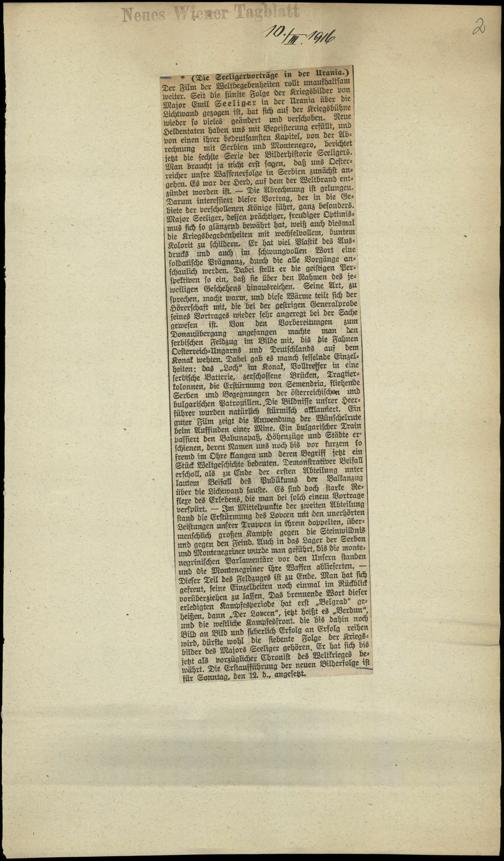 Neues Wiener Tagblatt
10./III. 1916
2
* (Die Seeligervorträge in der Urania.)
Der Film der Weltbegebenheiten rollt unaufhaltsam
weiter. Seit die fünfte Folge der Kriegsbilder von
Major Emil Seeliger in der Urania über die
Lichtwand gezogen ist, hat sich auf der Kriegsbühne
wieder so vieles geändert und verschoben. Neue
Heldentaten haben uns mit Begeisterung erfüllt, und
von einen ihrer bedeutsamsten Kapitel, von der Ab-
rechnung mit Serbien und Montenegro, berichtet
jetzt die sechste Serie der Bilderhistorie Seeligers.
Man braucht ja nicht erst sagen, daß uns Oester-
reicher unsre Waffenfolge in Serbien zunächst an-
gehen. Es war der Herd, auf dem der Weltbrand ent-
zündet worden ist. — Die Abrechnung ist gelungen.
Darum interessiert dieser Vortrag, der in die Ge-
biete der verschollenen Könige führt, ganz besonders.
Major Seeliger, dessen prächtiger, freudiger Optimis-
mus sich so glänzend bewährt hat, weiß auch diesmal
die Kriegsbegebenheiten mit wechselvollem, buntem
Kolorit zu schildern. Er hat viel Plastik des Aus-
drucks und auch im schwungvollen Wort eine
soldatische Prägnanz, durch die alle Vorgänge an-
schaulich werden. Dabei stellt er die geistigen Per-
spektiven so ein, daß sie über den Rahmen des je-
weiligen Geschehens hinausreichen. Seine Art, zu
sprechen, macht warm, und diese Wärme teilt sich der
Hörerschaft mit, die bei der gestrigen Generalprobe
seines Vortrages wieder sehr angeregt bei der Sache
gewesen ist. Von den Vorbereitungen zum
Donauübergang angefangen machte man den
serbischen Feldzug im Bilde mit, bis die Fahnen
Oesterreich-Ungarns und Deutschlands auf dem
Konak wehten. Dabei gab es manch fesselnde Einzel-
heiten; das „Loch“ im Konak, Volltreffer in eine
serbische Batterie, zerschossene Brücken, Tragtier-
kolonnen, die Erstürmung von Semendria, fliehende
Serben und Begegnungen der österreichischen und
bulgarischen Patrouillen. Die Bildnisse unsrer Heer-
führer wurden natürlich stürmisch akklamiert. Ein
guter Film zeigt die Anwendung der Wünschelrute
beim Auffinden einer Mine. Ein bulgarischer Train
passiert den Babunapaß, Höhenzüge und Städte er-
schienen, deren Namen uns noch bis vor kurzem so
fremd im Ohre klangen und deren Begriff jetzt ein
Stück Weltgeschichte bedeuten. Demonstrativer Beifall
erscholl, als zu Ende der ersten Abteilung unter
lautem Beifall des Publikums der Balkanzug
über die Lichtwand sauste. Es sind doch starke Re-
flexe des Erlebens, die man bei solch einem Vortrage
verspürt. — Im Mittelpunkte der zweiten Abteilung
stand die Erstürmung des Lovcen mit den unerhörten
Leistungen unsrer Truppen in ihrem doppelten, über-
menschlich großen Kampfe gegen die Steinwildnis
und gegen den Feind. Auch in das Lager der Serben
und Montenegriner wurde man geführt, bis die monte-
negrinischen Parlamentäre vor den Unsern standen
und die Montenegriner ihre Waffen ablieferten. —
Dieser Teil des Feldzuges ist zu Ende. Man hat sich
gefreut, seine Einzelheiten noch einmal im Rückblick
vorüberziehen zu lassen. Das brennende Wort dieser
erledigten Kampfesperiode hat erst „Belgrad“ ge-
heißen, dann „Der Lovcen“, jetzt heißt es „Verdun“,
und die westliche Kampfesfront, die bis dahin noch
Bild an Bild und sicherlich Erfolg an Erfolg reihen
wird, dürfte wohl die siebente Folge der Kriegs-
bilder des Majors Seeliger gehören. Er hat sich bis
jetzt als vorzüglicher Chronist des Weltkrieges be-
währt. Die Erstaufführung der neuen Bilderfolge ist
für Sonntag, den 12. d., angesetzt.